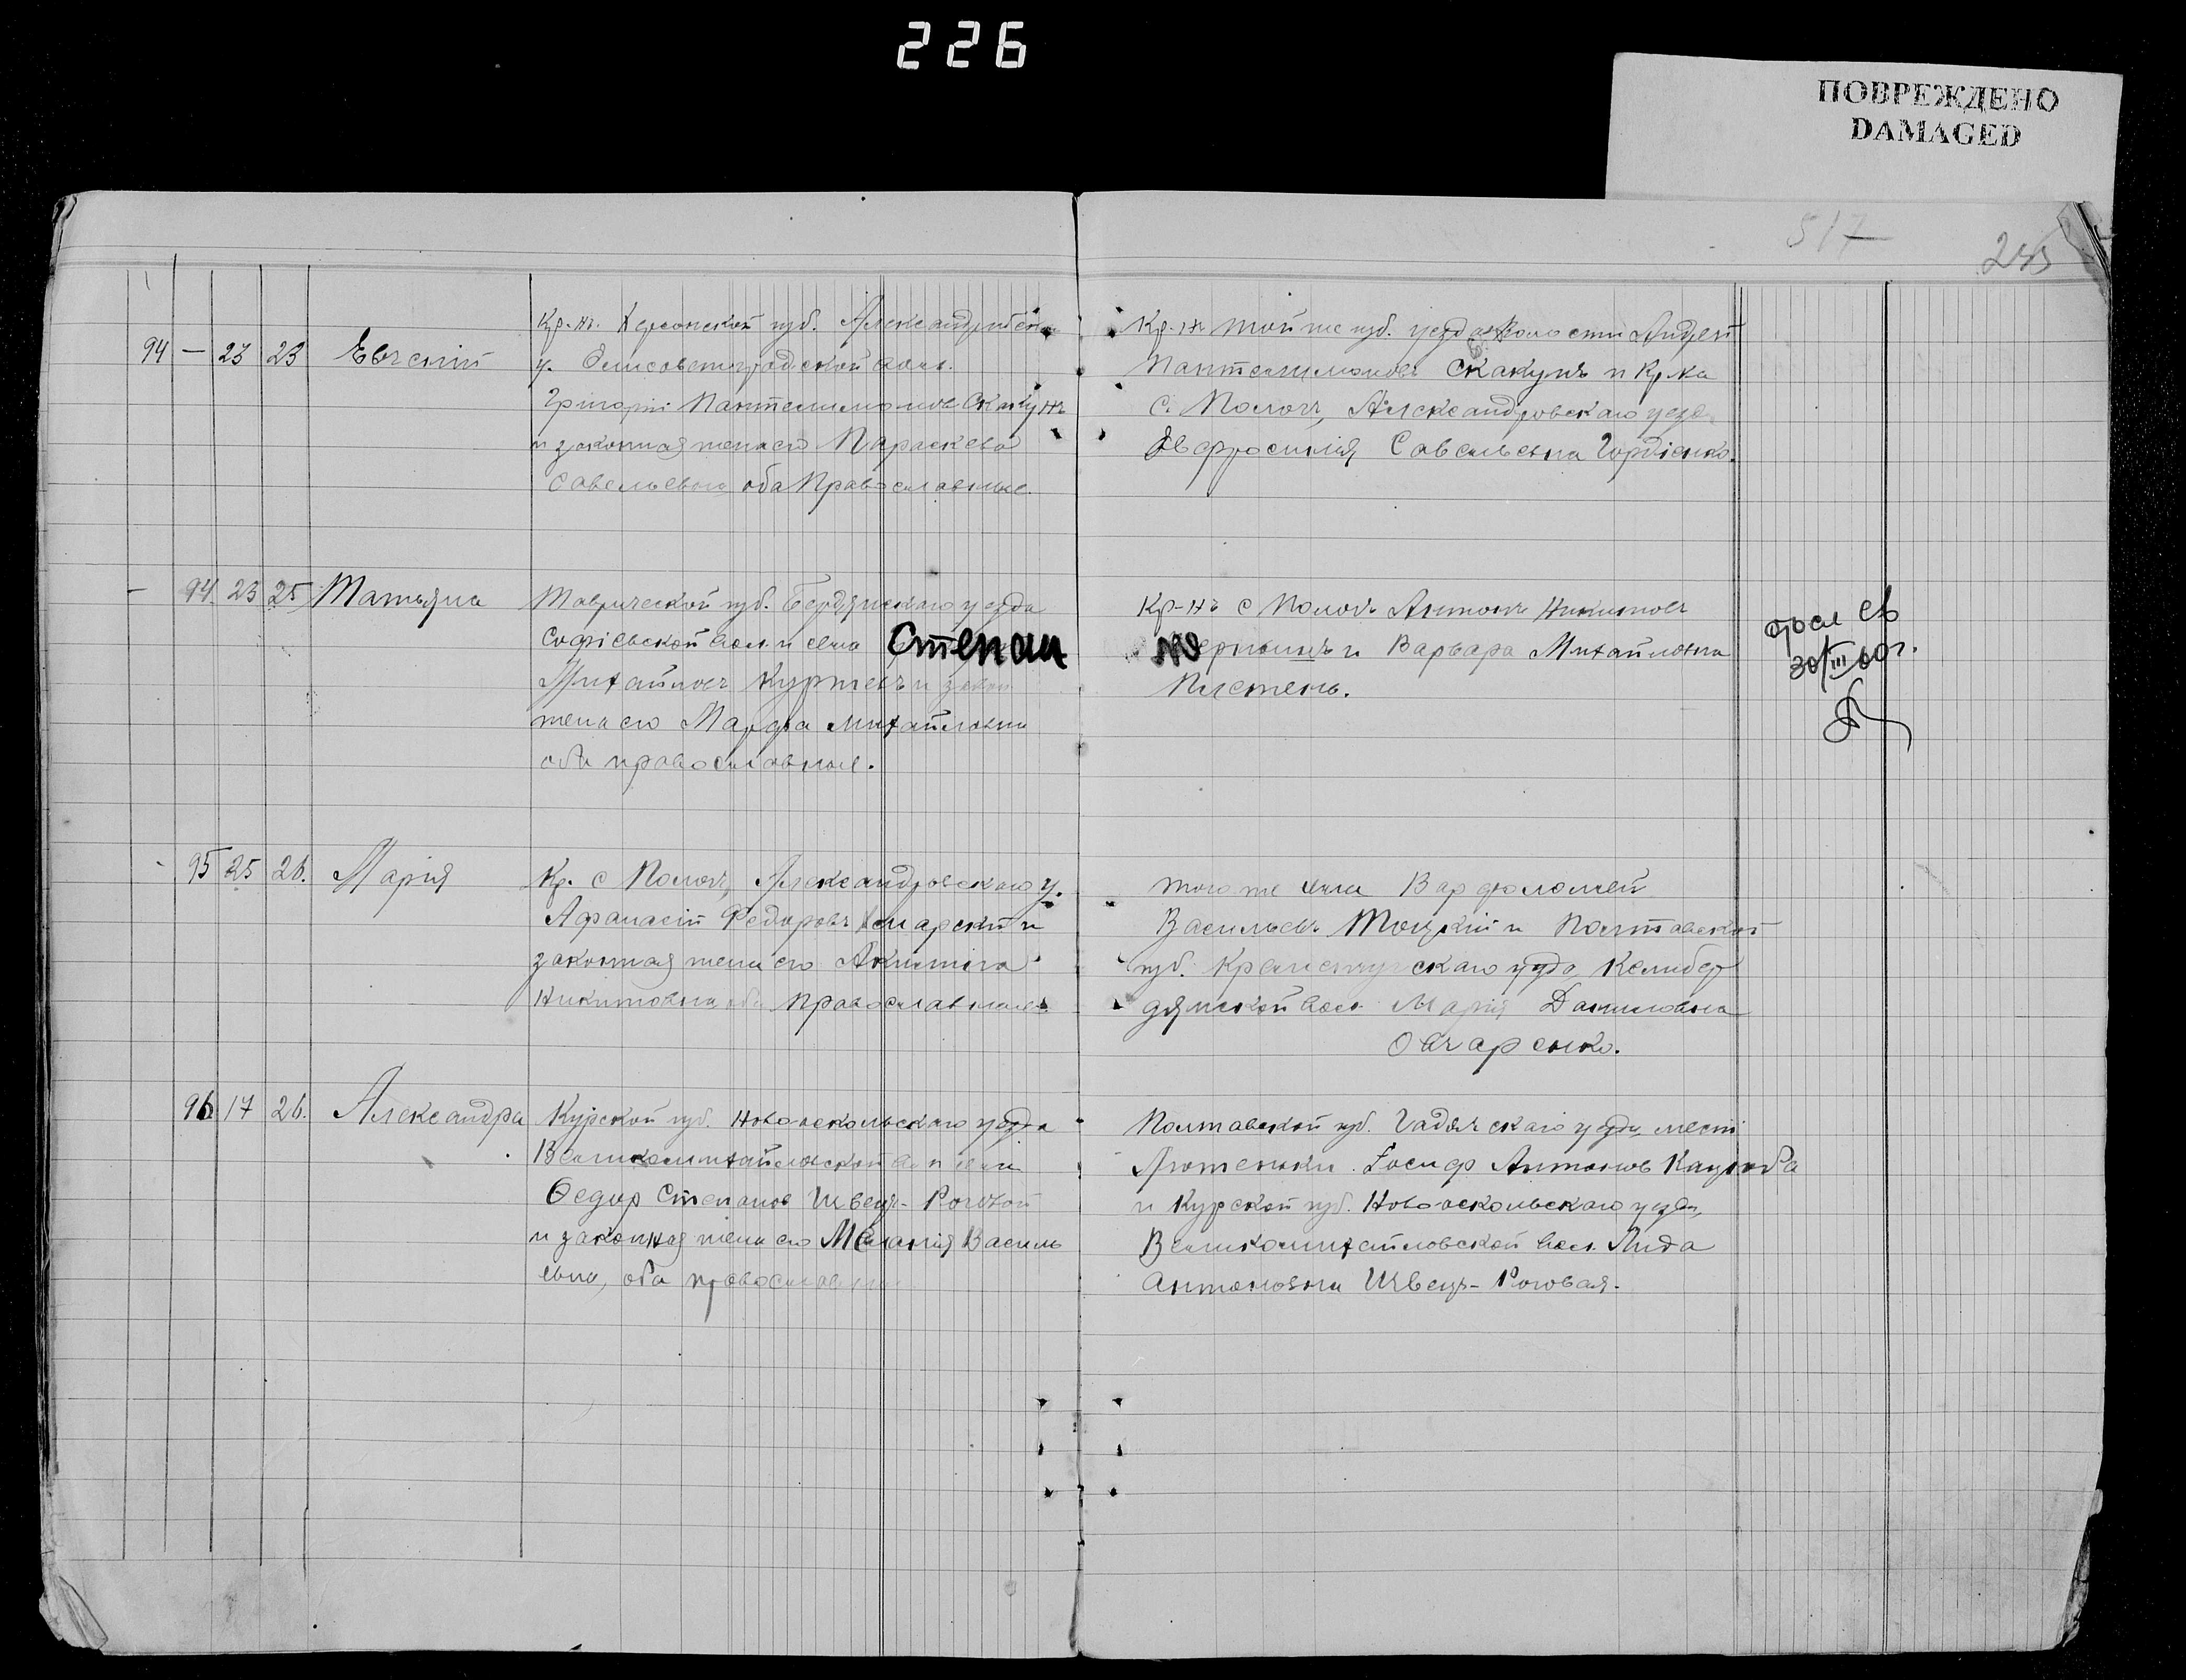 226
ПОВРЕЖДЕНО
DAMAGED
517
94 — 23 23 Евгеній
Кр.-нъ. Херсонской губ. Александрійск
у. Елисоветградской вол.
Григорій Пантелимонов Скакунъ
и законная жена его Параскева
Савельевна оба Православные.
Кр.-нъ той же губ. уезда и волости Андрей
Пантелимоновъ Скакунъ и Кр.ка
с. Пологъ, Александровскаго уезд
Евфросинія Савельевна Гордіенко.
— 94 23 25 Татьяна
Таврической губ. Бердянскаго уезда
Софіевской вол. и села Степан
Михайловъ Куртевъ и закон
жена его Марфа Михайловна
оба православные.
Кр-нъ с Пологъ Антонъ Никитовъ
и Варвара Михайловна
30/III 00г.
- 95 25 26. Марія
Кр. с Пологъ, Александровскаго у.
Афанасій Федоровъ и
законная жена его Акилина
Никитовна оба православные.
того же села Варфоломей
Васильевъ Тоцкій и Полтавской
губ. Кременчугскаго уезда Келибер
дянской вол. Марія Даниловна
Овчаренко.
96 17 26. Александра
Курской губ. Новооскольскаго уезда
Великомихайловской вол и села
Ѳедор Степанов Швець-Роговой
и законная жена его Меланія Василь
евна, оба православные
Полтавской губ. Гадячскаго уезда, мест
Лютеньки. Іосиф Антонов Кацюба
и Курской губ. Новооскольскаго уезда,
Великомихайловской вол. Лида
Антоновна Швець-Роговая.